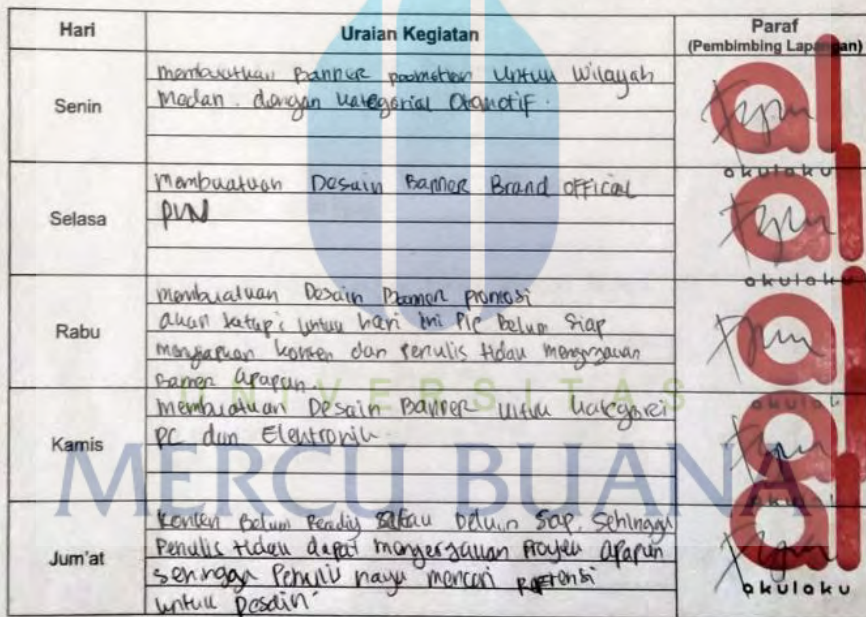 Hari Uraian Kegiatan Paraf
(Pembimbing Lapangan)
Senin
membuatkan Banner promotion untuk Wilayah
Medan. dengan kategorial Otomotif.
Selasa
membuatkan Desain Banner Brand OFFicial
Rabu
membuatkan Desain Banner promosi
akan tetapi untuk hari ini Pic Belum Siap
menyiapkan konten dan Penulis tidak mengerjakan
Banner apapun.
Kamis
membuatkan Desain Banner untuk kategori
PC dan Elektronik.
Jum'at
Konten Belum Ready atau belum Siap. Sehingga
Penulis tidak dapat mengerjakan Proyek apapun
sehingga Penulis hanya mencari
untuk Desain.
akulaku
akulaku
akulaku
akulaku
UNIVERSITAS
MERCU BUANA